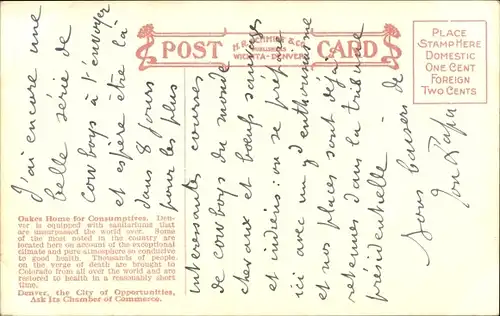 POST CARD
H. H. SCHMIDT & CO.
PUBLISHERS
WICHITA-DENVER
PLACE
STAMP HERE
DOMESTIC
ONE CENT
FOREIGN
TWO CENTS
J'ai encore une
belle série de
cow boys à t'envoyer
et espère être là
dans 8 jours
pour les plus
interessantes courses
de cow boys du monde
chevaux et bœufs sauvages
et indiens: on se prépare
ici avec un d'enthousiasme
et nos places sont déjà
retenues dans la tribune
présidentielle
Bons baisers de
ton Papa
Oakes Home for Consumptives. Den-
ver is equipped with sanitariums that
are unsurpassed the world over. Some
of the most noted in the country are
located here on account of the exceptional
climate and pure atmosphere so conducive
to good health. Thousands of people
on the verge of death are brought to
Colorado from all over the world and are
restored to health in a reasonably short
time.
Denver, the City of Opportunities,
Ask Its Chamber of Commerce.